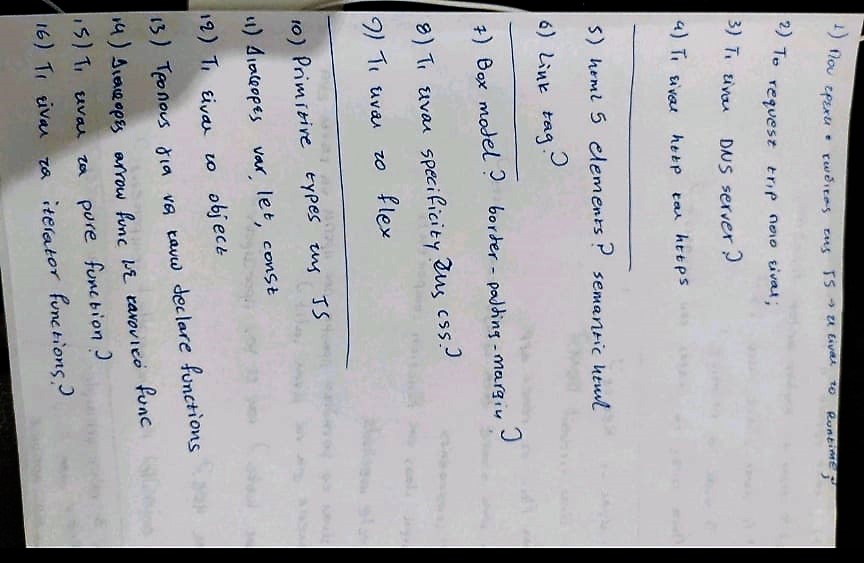 1) Που τρεχει ο κωδικας της JS → τι ειναι το Runtime;
2) Το request trip ποιο ειναι;
3) Τι ειναι DNS server?
4) Τι ειναι http και https
5) html 5 elements? semantic html
6) Link tag?
7) Box model? border-padding-margin?
8) Τι ειναι specificity της css?
9) Τι ειναι το flex
10) Primitive types της JS
11) Διαφορες var, let, const
12) Τι ειναι το object
13) Τροπους για να κανω declare functions
14) Διαφορες arrow func με κανονικό func
15) Τι ειναι τα pure function?
16) Τι ειναι τα iterator functions?